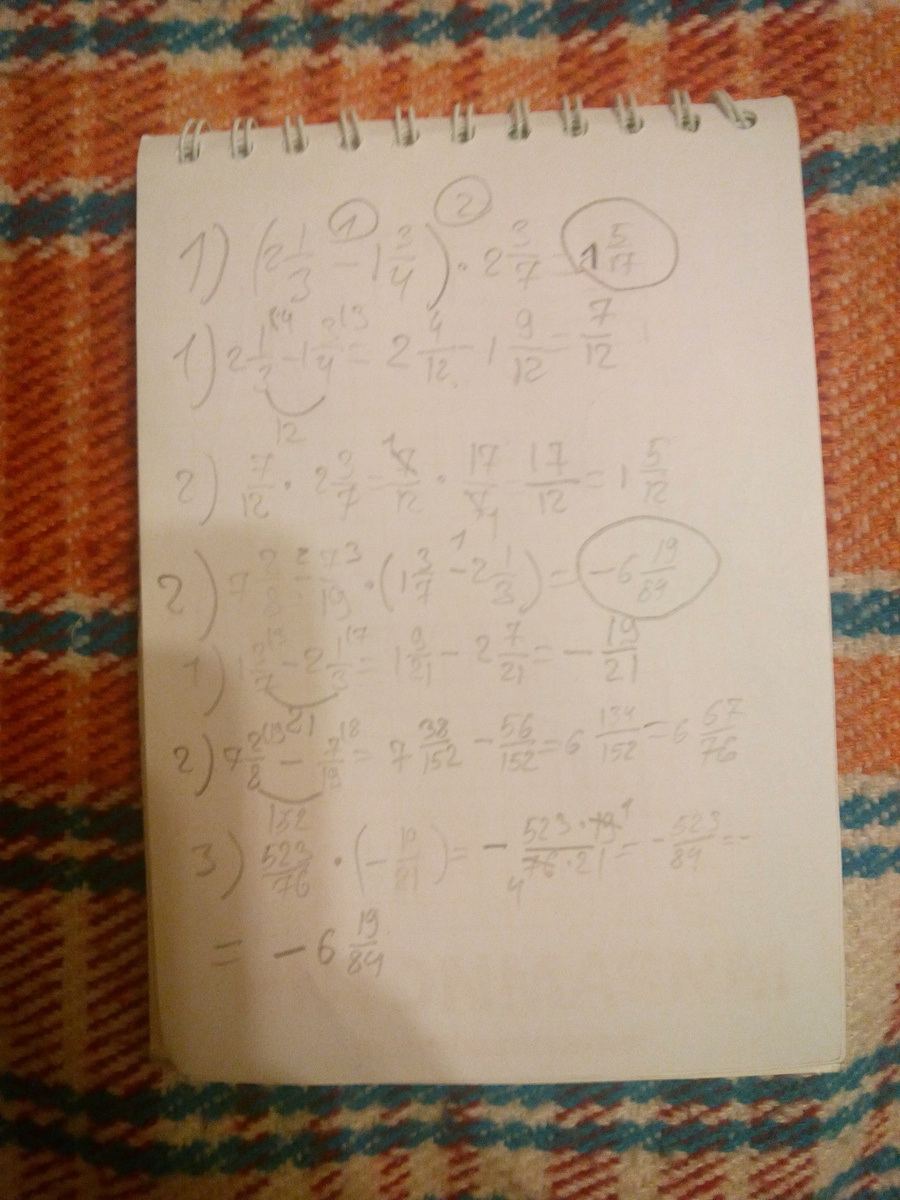 ① ②
1) (2 1/3 - 1 3/4) · 2 3/7 = 1 5/17
1) 2 1/3 - 1 3/4 = 2 4/12 - 1 9/12 = 7/12
12
2) 7/12 · 2 3/7 = 7/12 · 17/7 = 17/12 = 1 5/12
2) 7 2/8 - 7/19 · (1 3/7 - 2 1/3) = -6 19/84
1) 1 3/7 - 2 1/3 = 1 9/21 - 2 7/21 = - 19/21
21
2) 7 2/8 - 7/19 = 7 38/152 - 56/152 = 6 134/152 = 6 67/76
152
3) 523/76 · (- 19/21) = - 523·19/76·21 = - 523/84 = -
= - 6 19/84